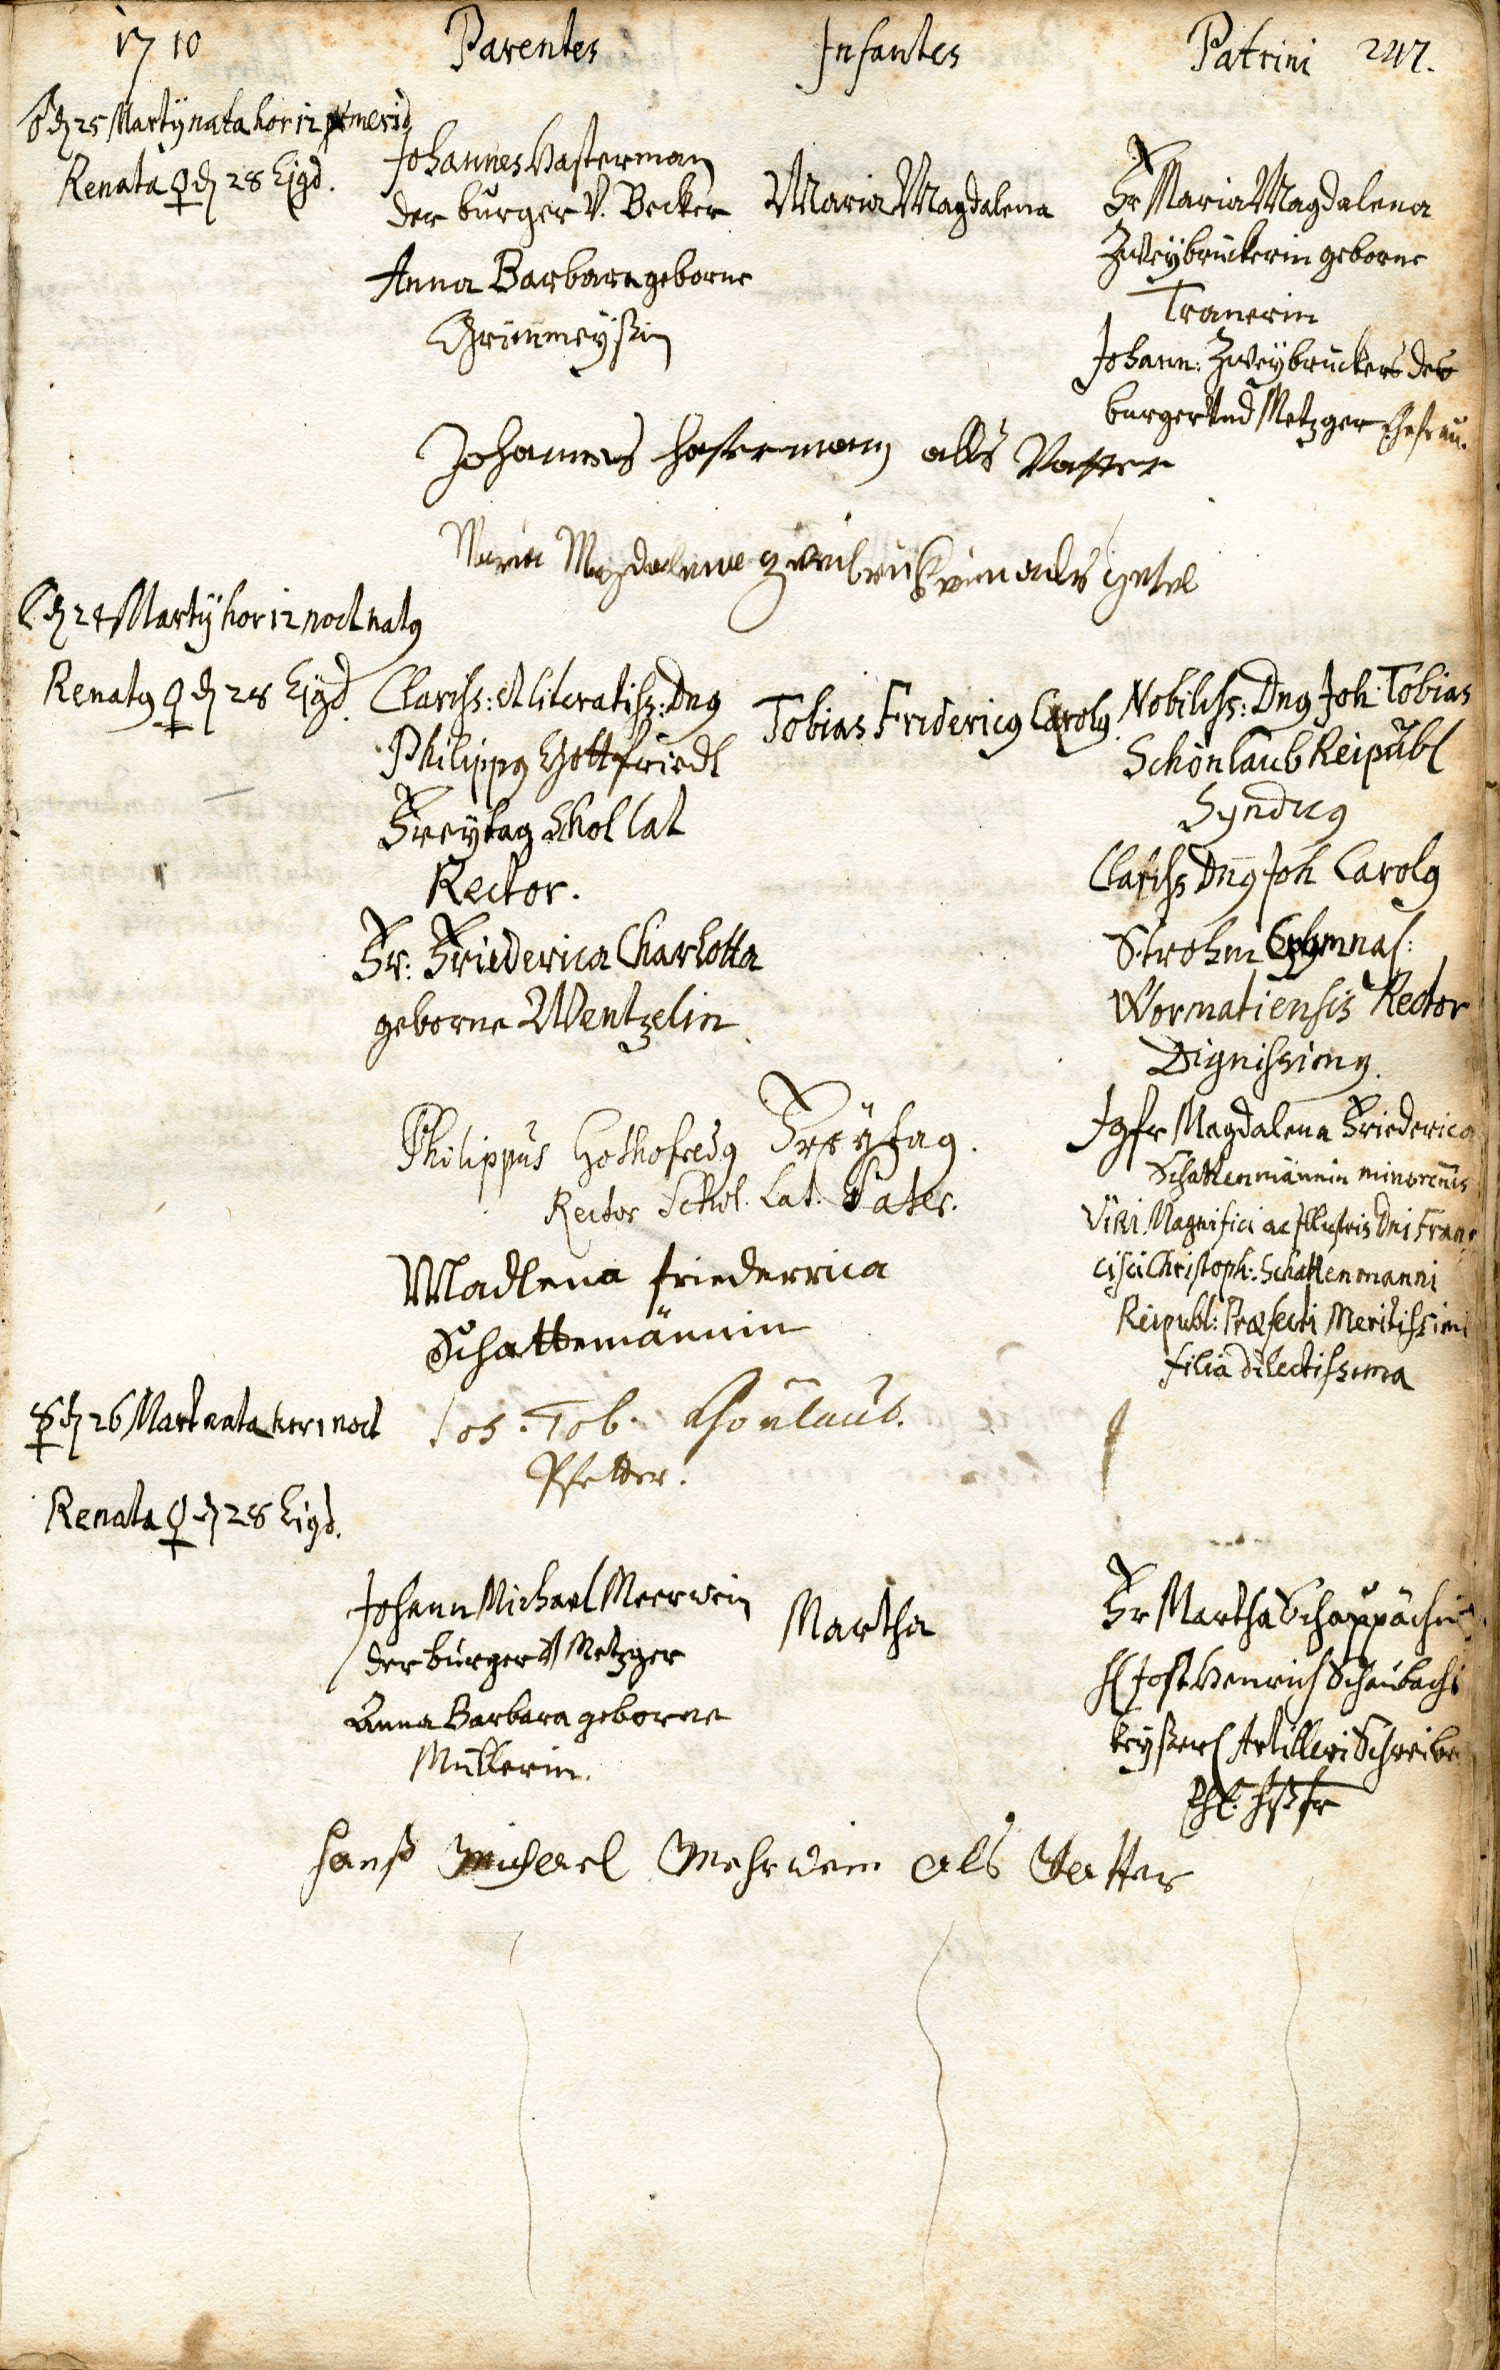 1710 Parentes Infantes Patrini 247.
♂ d 25 Martij nata hor 12 merid
Renata ♀ d 28 Ejgd.
Johannes Hasterman
der burger V. Becker
Anna Barbara geborne
Maria Magdalena
Fr Maria Magdalena
Zweybruckerin geborne
Tranerin
Johann: Zweybruckers des
burger Und Metzger Ehefrau.
Johannes hasterman alls Vatter
Maria Magdalena
☾ d 24 Martij hor 12 noct natg
Renatg ♀ d 28 Ejgd.
Clariss: et literatiss: Dng
Philippg Gottfriedt
Freytag Schol lat
Rector.
Fr: Friederica Charlotta
geborne Wentzelin
Tobias Fridericg Carolg
Nobiliss: Dng Joh: Tobias
Schönlaub Reipubl
Syndicg
Clariss Dng Joh Carolg
Strohm Gymnas:
Wormatiensis Rector
Dignissimg.
Jgfr Magdalena Friederica
Schattenmännin minorennis
Viri Magnifici ac Illustris Dni Fran
cisci Christoph: Schattenmanni
Reipubl: Præfecti Meritissimi
filia dilectissima
Philippus Gothofredg Freÿtag.
Rector Schol. Lat. Pater.
Madlena friederrica
Schattemännin
Joh. Tob. Schönlaub.
Pfetter.
☿ d 26 Mart nata hor 1 noct
Renata ♀ d 28 Ejgd.
Johann Michael Meerwein
der burger V Metzger
Anna Barbara geborne
Müllerin.
Martha
Fr Martha
H Jost Henrich Schaubachs
keyßerl Artilleri Schreiber
hanß Michael Mehrwein als Vatter